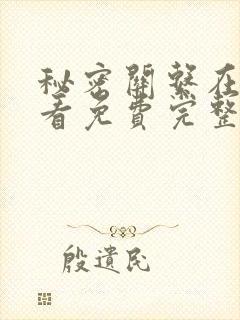 秘密關繫在
看免費完整
殷遺民